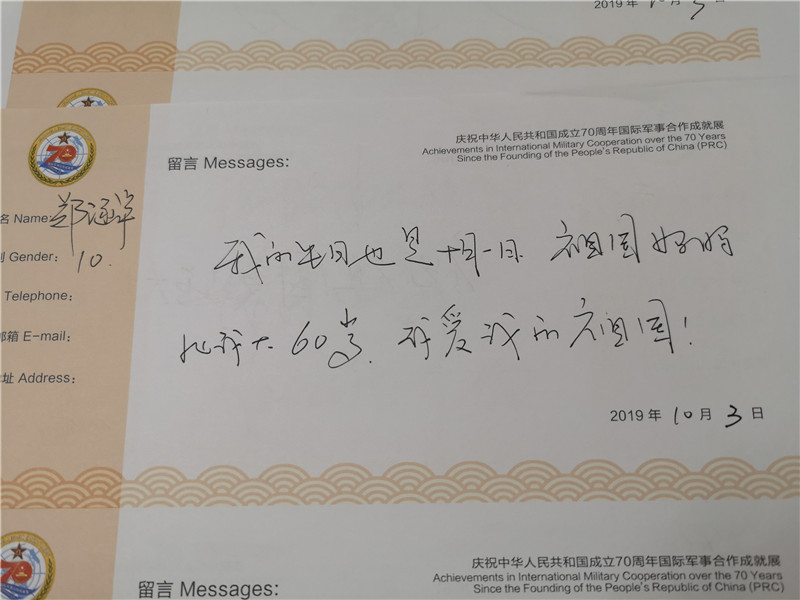 2019 年 月 日
庆祝中华人民共和国成立70周年国际军事合作成就展
Achievements in International Military Cooperation over the 70 Years
Since the Founding of the People's Republic of China (PRC)
留言 Messages:
名 Name: 郑
别 Gender: 10.
Telephone:
邮箱 E-mail:
址 Address:
我的生日也是十月一日. 祖国妈妈
比我大60岁. 我爱我的祖国!
2019 年 10 月 3 日
庆祝中华人民共和国成立70周年国际军事合作成就展
Achievements in International Military Cooperation over the 70 Years
Since the Founding of the People's Republic of China (PRC)
留言 Messages: